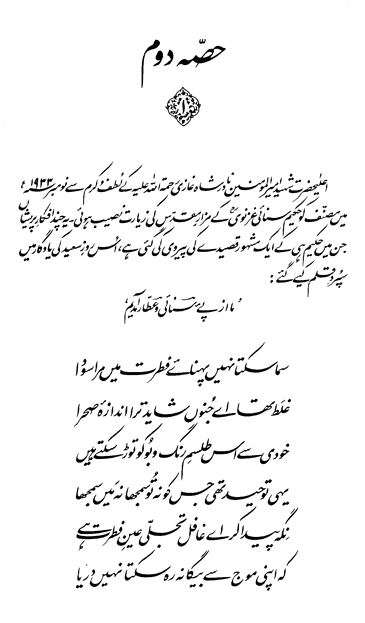 حصّہ دوم
۱
اعلیٰحضرت شہید امیرالمومنین نادر شاہ غازی رحمۃ اللہ علیہ کے لطف و کرم سے نومبر ۱۹۳۳ء
میں مصنّف کو حکیم سنائی غزنویؒ کے مزارِ مقدس کی زیارت نصیب ہوئی۔ یہ چند افکارِ پریشاں
جن میں حکیم ہی کے ایک مشہور قصیدے کی پیروی کی گئی ہے، اس روزِ سعید کی یادگار میں
سپردِ قلم کیے گئے:
'ما از پئے سنائی و عطّار آمدیم'
سما سکتا نہیں پہنائے فطرت میں مرا سودا
غلط تھا اے جُنوں شاید ترا اندازۂ صحرا
خودی سے اس طلسمِ رنگ و بُو کو توڑ سکتے ہیں
یہی توحید تھی جس کو نہ تُو سمجھا نہ مَیں سمجھا
نِگہ پیدا کر اے غافل تجلّی عینِ فطرت ہے
کہ اپنی موج سے بیگانہ رہ سکتا نہیں دریا